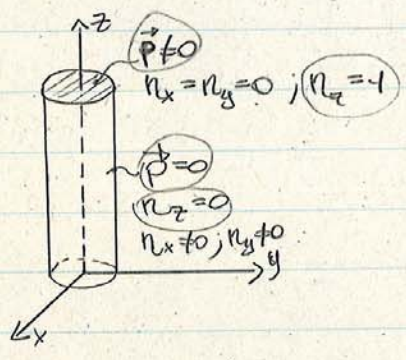 z
p⃗≠0
n_x = n_y = 0 ; n_z = -1
p⃗=0
n_z=0
n_x≠0 ; n_y≠0
y
x